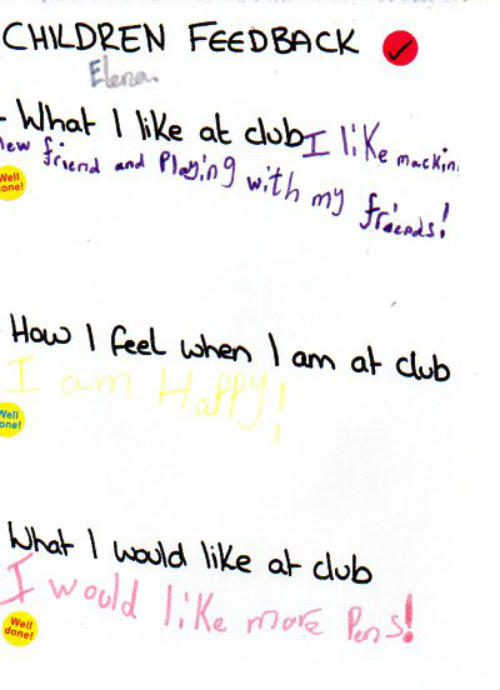 CHILDREN FEEDBACK
Elena
- What I like at club I like mackin
new friend and Playing with my friends!
Well
one!
How I feel when I am at club
I am Happy!
Well
one!
What I would like at club
I would like more Pens!
Well
done!